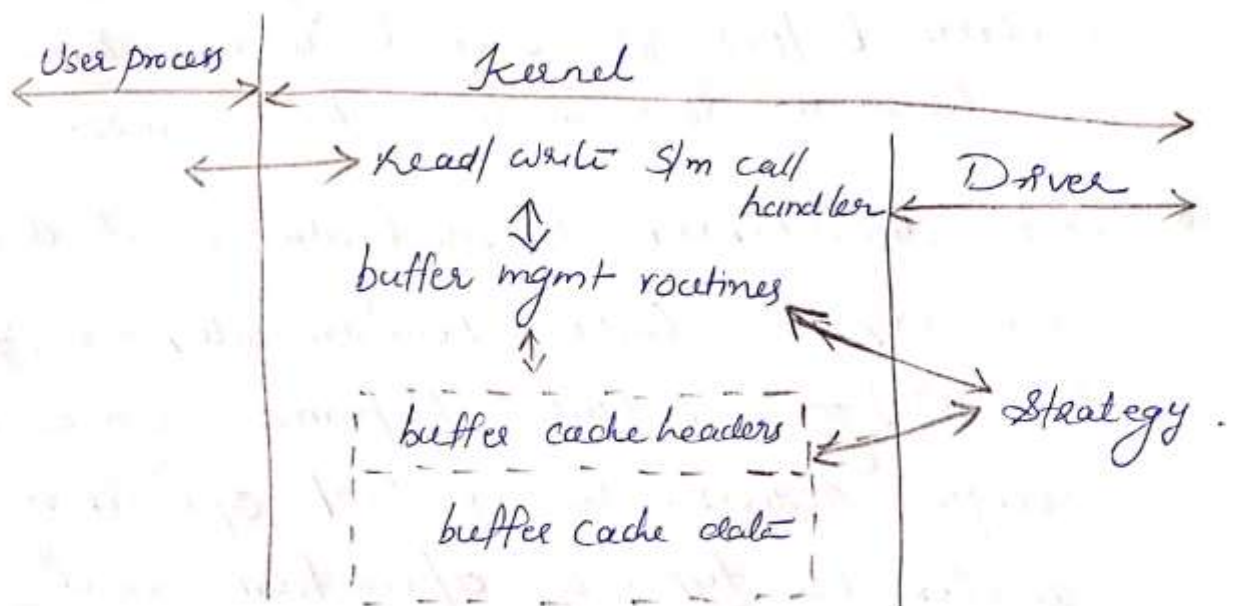 User process
Kernel
Read/ write S/m call
handler
Driver
buffer mgmt routines
buffer cache headers
Strategy.
buffer cache data